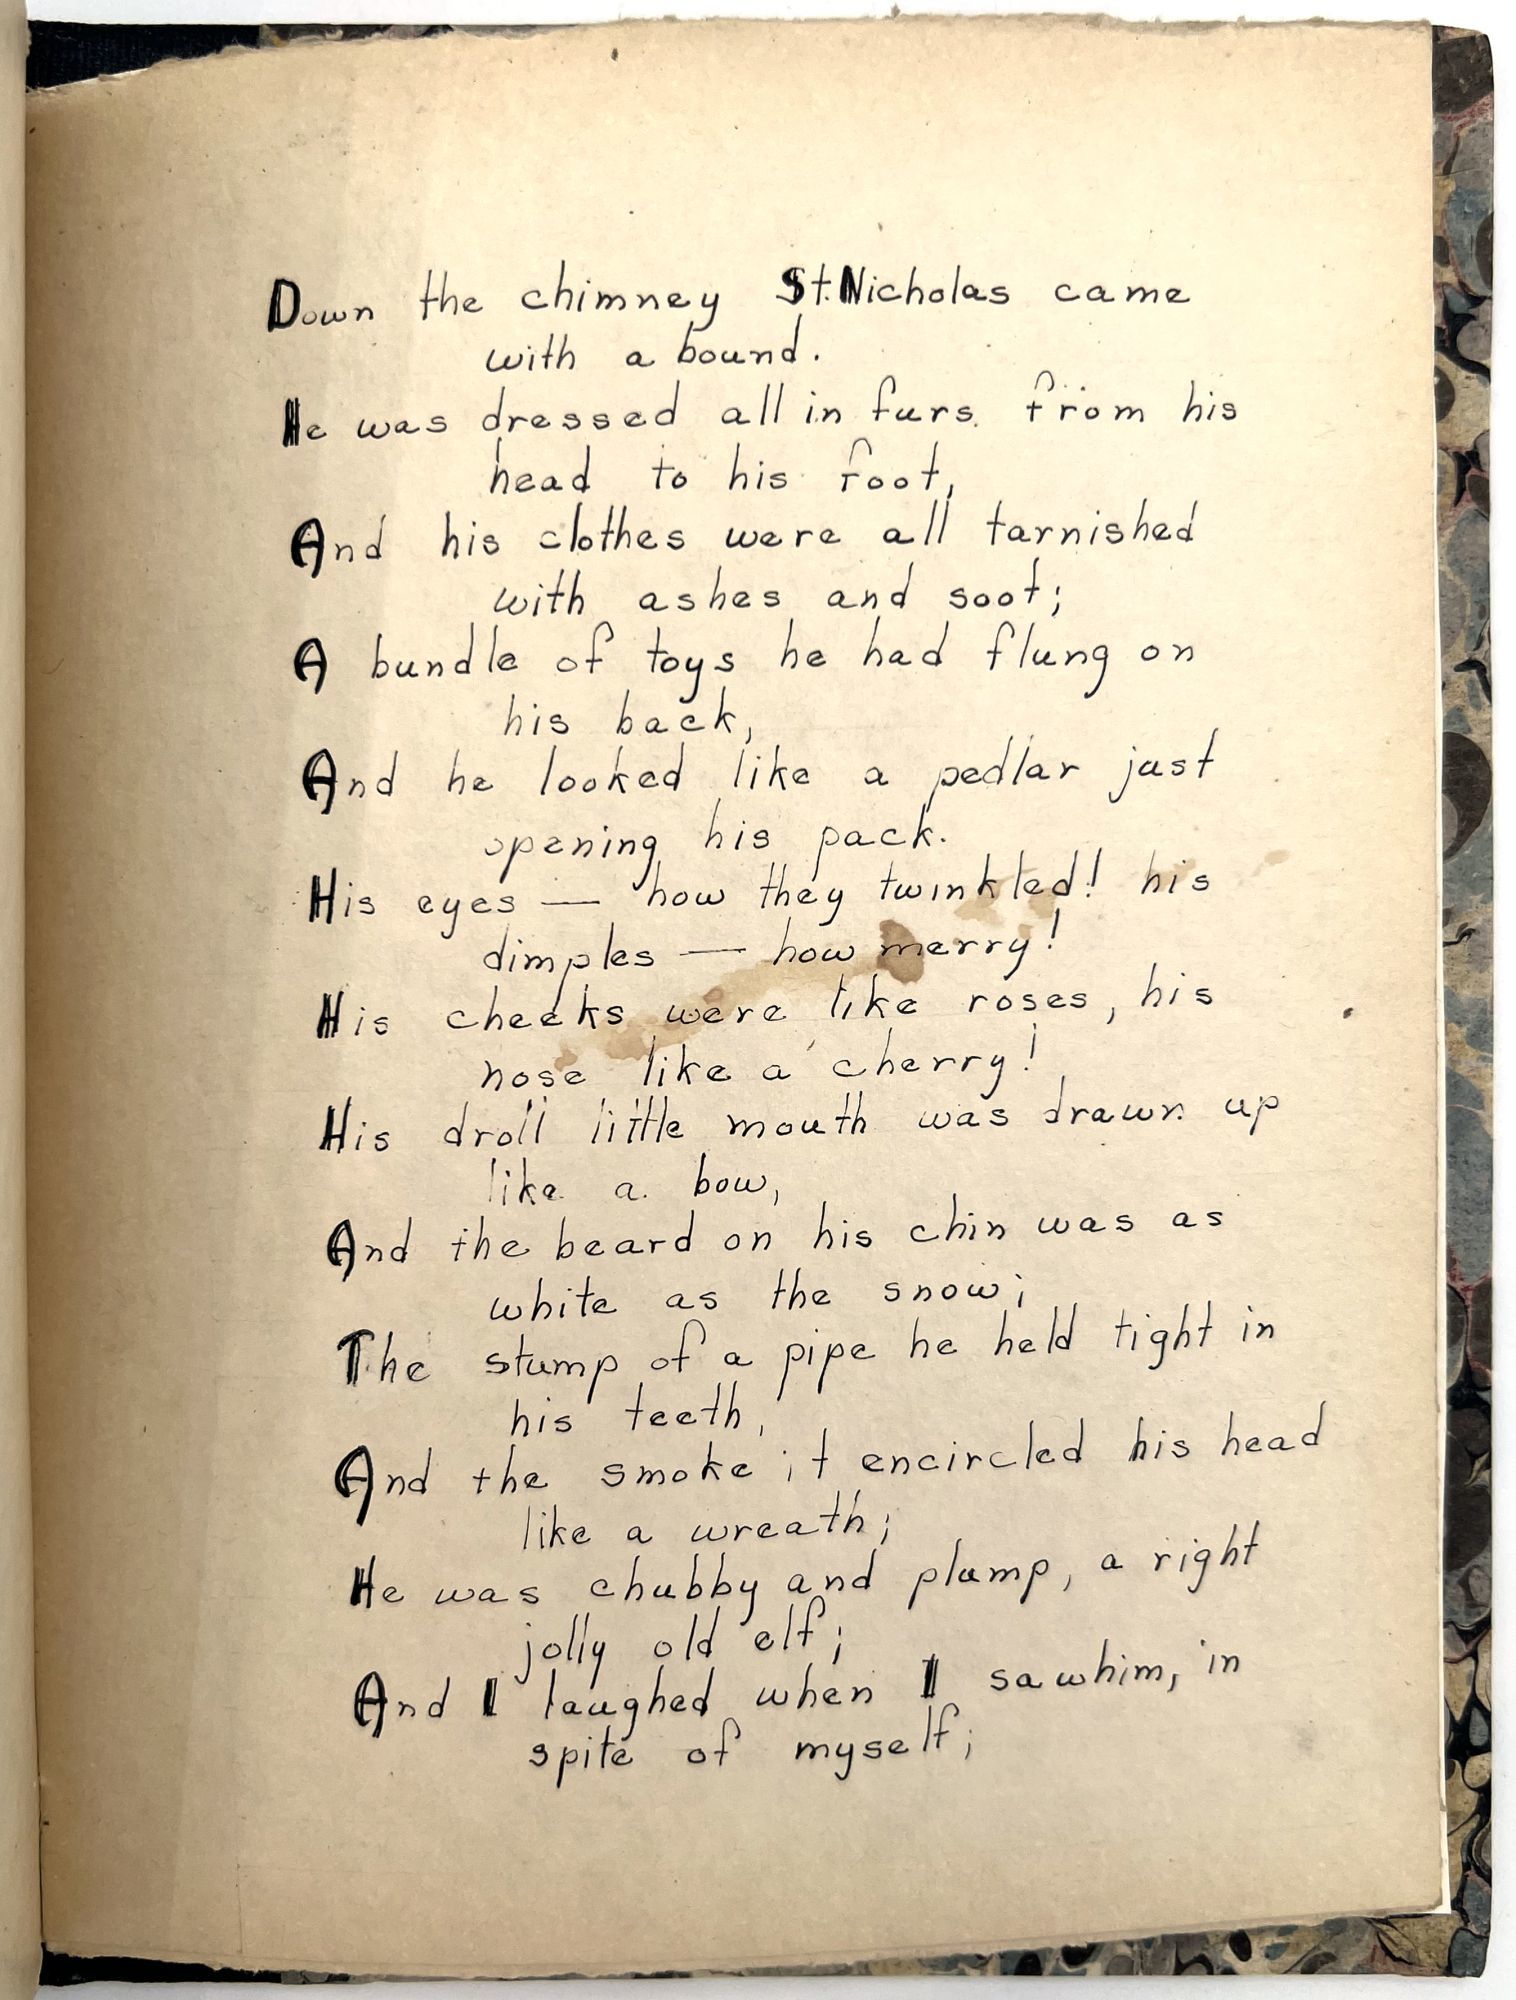 Down the chimney St. Nicholas came
with a bound.
He was dressed all in furs. from his
head to his foot,
And his clothes were all tarnished
with ashes and soot;
A bundle of toys he had flung on
his back,
And he looked like a pedlar just
opening his pack.
His eyes — how they twinkled! his
dimples — how merry!
His cheeks were like roses, his
nose like a cherry!
His droll little mouth was drawn up
like a bow,
And the beard on his chin was as
white as the snow;
The stump of a pipe he held tight in
his teeth,
And the smoke it encircled his head
like a wreath;
He was chubby and plump, a right
jolly old elf;
And I laughed when I saw him, in
spite of myself;